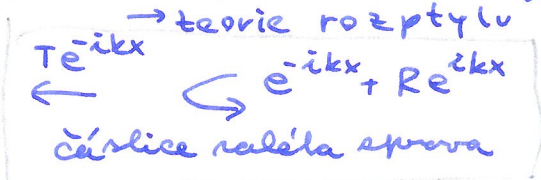 → teorie rozptylu
Te^{-ikx} e^{-ikx} + Re^{ikx}
částice nalétá zprava